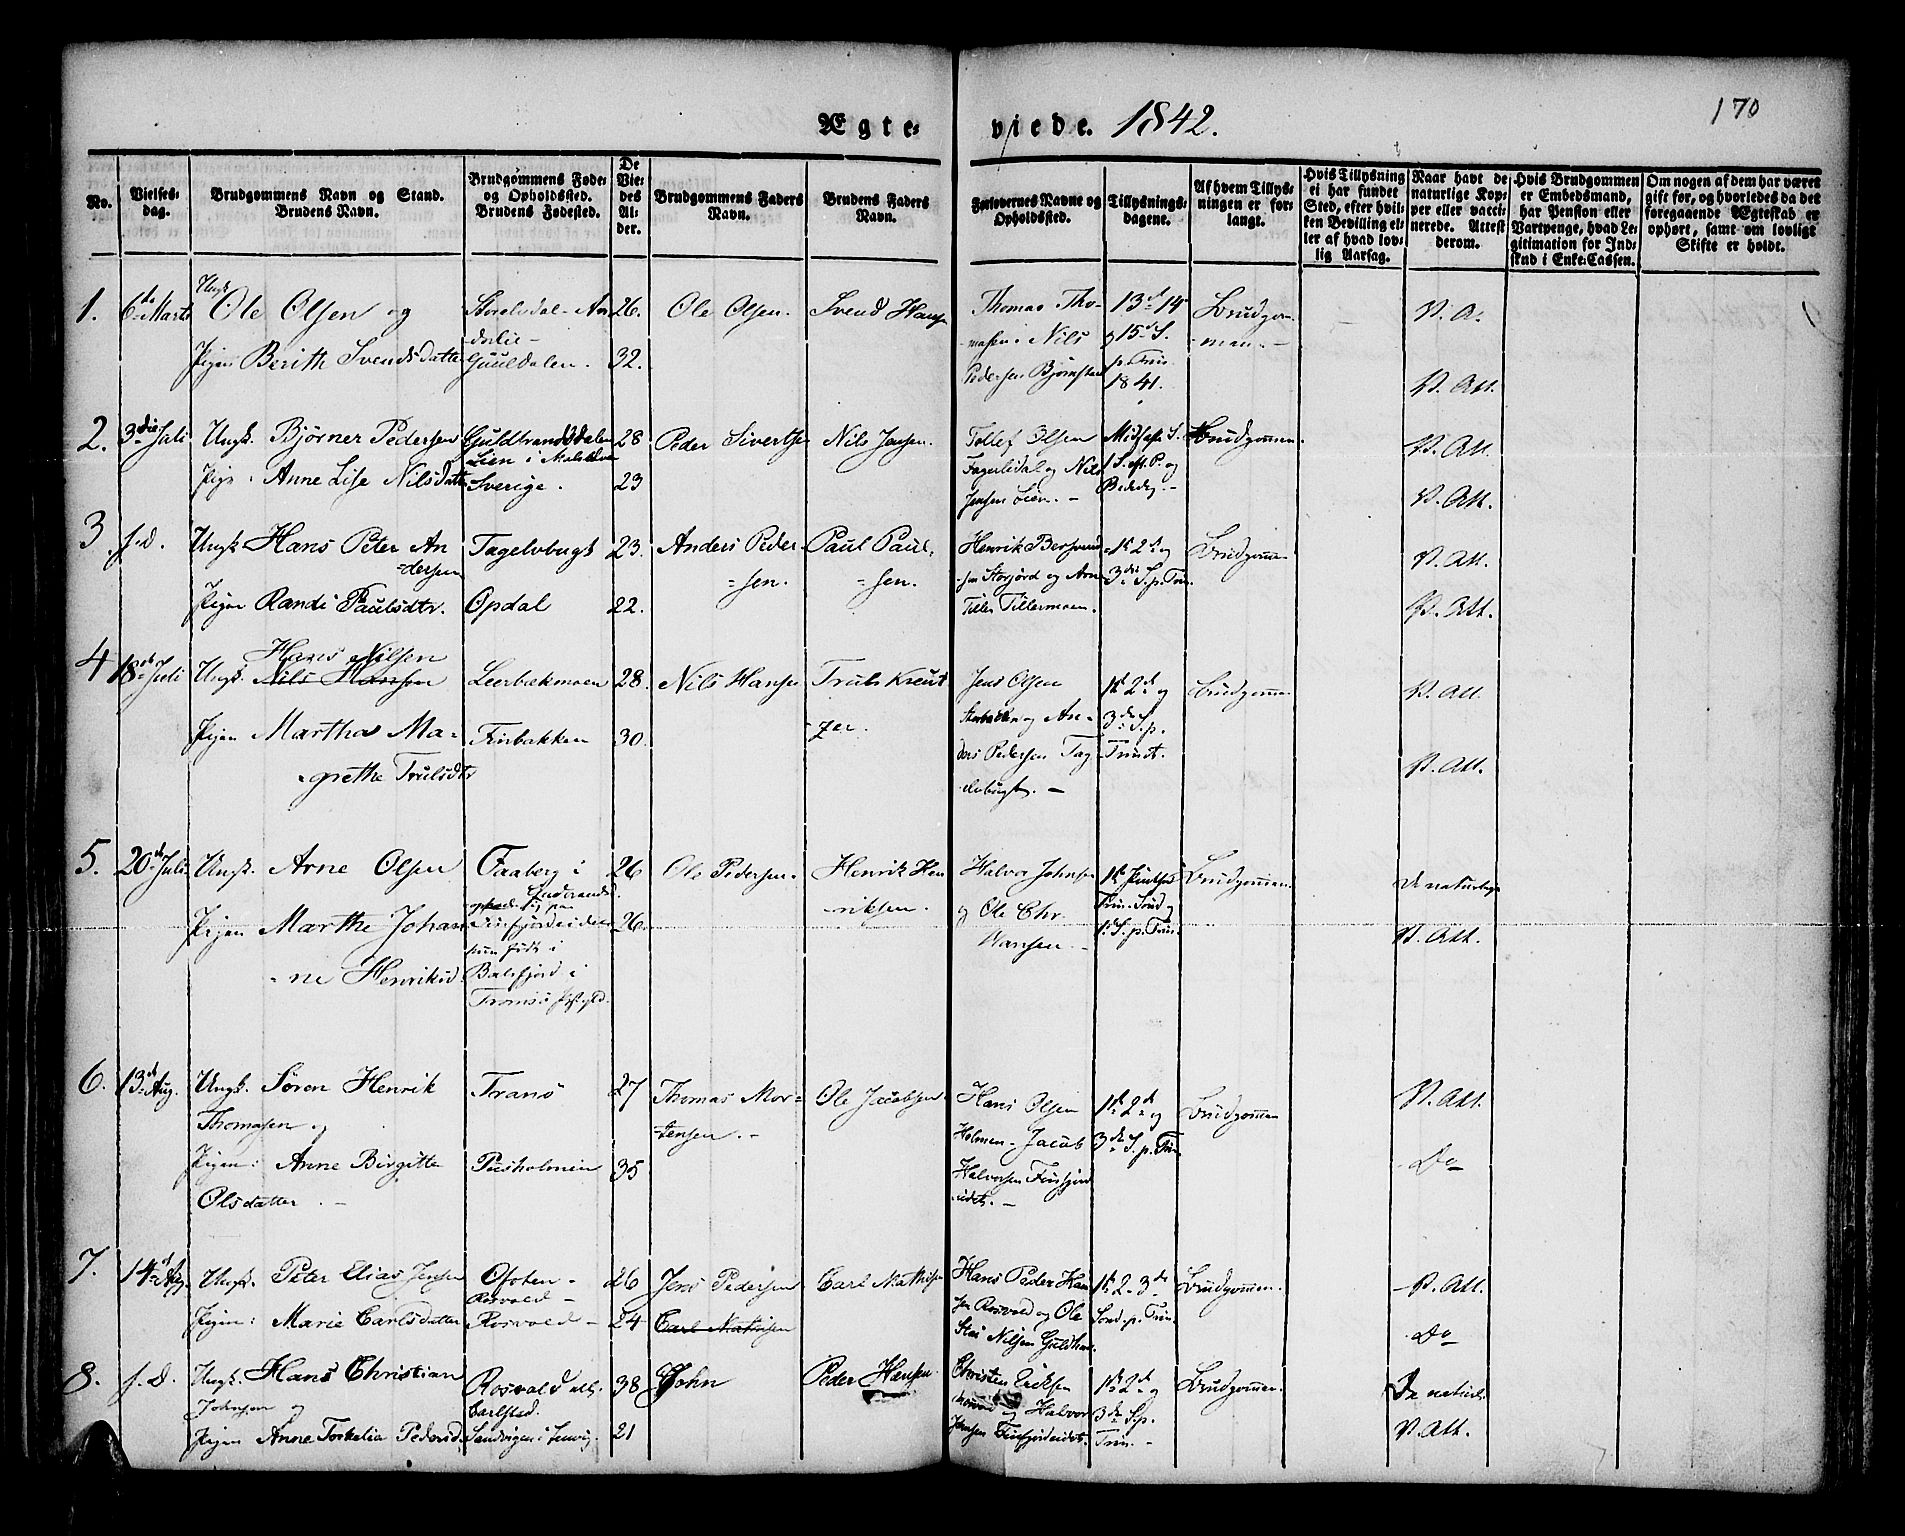 170
Ægte- viede. 1842.
No.
Vielses-
dag.
Brudgommens Navn og Stand.
Brudens Navn.
Brudgommens Føde-
og Opholdssted.
Brudens Fødested.
De
Vie-
des
Al-
der.
Brudgommens Faders
Navn.
Brudens Faders
Navn.
Forlovernes Navne og
Opholdssted.
Tillysnings-
dagene.
Af hvem Tillys-
ningen er for-
langt.
Hvis Tillysning
ei har fundet
Sted, efter hvil-
ken Bevilling el-
ler af hvad lov-
lig Aarsag.
Naar havt de
naturlige Kop-
per eller vacci-
nerede. Attest
derom.
Hvis Brudgommen
er Embedsmand,
har Pension eller
Vartpenge, hvad Le-
gitimation for Ind-
skud i Enke-Cassen.
Om nogen af dem har været
gift før, og hvorledes da det
foregaaende Ægteskab er
ophørt, samt om lovligt
Skifte er holdt.
1. 6te Marts
Ungk.
Ole Olsen og
Pigen Berith Svendsdatter
Guuldalen.
26.
32.
Ole Olsen.
Svend Hansen
Thomas Tho-
masen. Nils
Pedersen Bjørnstad
13de 14
og 15de S.
p. Trin.
1841.
Brudgom-
men.
V. A.
V. Att.
2. 3die Juli
Ungk. Bjørner Pedersen
Pigen Anne Lise Nilsdatter
Guldbrandsdalen
Lien i Malselven
Sverige.
28
23
Peder Sivertsen
Nils Jensen.
Tollef Olsen
Fagerlidal og Nils
Jensen Lien. -
1 S. eft. P. og
Bededag. -
Brudgommen.
V. Att.
V. Att.
3 s. D.
Ungk. Hans Peter An
=dersen
Pigen Randi Paulsdtr.
Tagelvbugt
Opdal
23.
22.
Anders Peder-
=sen.
Paul Paul-
=sen.
Henrik Bersvend
sen Storjord og Arn
Tiller Tillermoen.
1ste 2den og
3die S. p. Trin.
Brudgommen
V. Att.
V. Att.
4 18de Juli
Hans Nilsen
Ungk. Nils Hansen
Pigen Martha Ma-
=grethe Trulsdtr
Leerbækmoen
Finbakken
28.
30.
Nils Hansen
Truls Kreut
-zer.
Jens Olsen
og An-
ders Pedersen Tag
elvbugt. -
1ste 2den og
3die S. p.
Trinit.
Brudgommen
V. Att.
V. Att.
5. 20de Juli
Ungk. Arne Olsen
Pigen Marthe Johan
=ne Henriksd.
Faaberg i
Gudbrandsd.
hun født i
Balsfjord i
Tromsø Præstgjld.
26
26.
Ole Pedersen.
Henrik Hen
-riksen.
Halvor Johnsen
og Ole Chr.
Hansen. -
Trin. Sønd og
1ste S. p. Trin.
Brudgommen.
De naturlige
V. Att.
6. 13de Aug.
Ungk. Søren Henrik
Thomasen og
Pigen: Anne Birgitte
Olsdatter. -
Tranø
Pusholmen
27
35
Thomas Mor-
=tensen. -
Ole Jacobsen
Hans Olsen
Holmen - Jacob
Halvorsen Finfjord
eidet. -
1ste 2den og
3die S. p. Trin
Brudgommen
V. Att.
Do
7. 14de Aug.
Ungk. Peter Elias Jensen
Pigen: Marie Carlsdatter
Ofoten -
Rosvold -
Rosvold -
26
24
Jens Pedersen
Carl Mathisen
Carl Mathisen
Hans Peder Han
sen Rosvold og Ole
Nilsen Guldhav
1ste 2- 3die
Sønd. p. Trin.
Brudgommen.
V. Att.
Do
8. s. D.
Ungk. Hans Christian
Johnsen og
Pigen Anne Torkelia Pedersd.
Rosvold
Carlstad.
Sandvigen i Lenvig.
38
21
John
Peder Hansen.
Christen Eriksen
og Halvor
Jensen Finfjordeidet.
1ste 2den og
3die S. p.
Trin. -
Brudgommen.
De naturl.
V. Att.